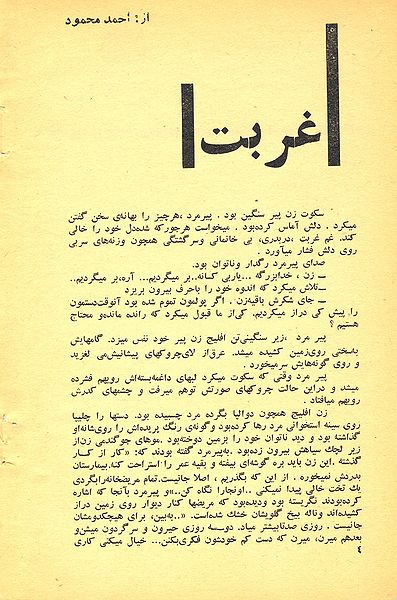 از : احمد محمود
غربت
سکوت زن پیر سنگین بود . پیرمرد ،هرچیز را بهانه‌ی سخن گفتن
میکرد . دلش آماس کرده‌بود . میخواست هرجورکه شده‌دل خود را خالی
کند. غم غربت ،دربدری، بی خانمانی وسرگشتگی همچون وزنه‌های سربی
روی دلش فشار میآورد .
صدای پیرمرد رگدار وناتوان بود.
ــ زن ، خدابزرگه ...یاریی کسانه..بر میگردیم... آره،بر میگردیم..
ــ تلاش میکرد که اندوه خود را باحرف بیرون بریزد
ــ جای شکرش باقیه‌زن . اگر پولمون تموم شده بود آنوقت‌دستمون
را پیش کی دراز میکردیم. کی‌از ما قبول میکرد که رانده مانده‌و محتاج
هستیم ؟
پیر مرد ،زیر سنگینی‌تن افلیج زن پیر خود نفس میزد. گامهایش
به‌سختی روی‌زمین کشیده میشد. عرق‌از لای‌چروکهای پیشانیش‌می لغزید
و روی گونه‌هایش سرمیخورد .
پیر مرد وقتی که سکوت میکرد لبهای داغمه‌بسته‌اش رویهم فشرده
میشد و دراین حالت چروکهای صورتش توهم میرفت و چشمهای کدرش
رویهم میافتاد .
زن افلیج همچون دوالپا بگرده مرد چسبیده بود. دستها را چلیپا
روی سینه استخوانی مرد رها کرده‌بود وگونه‌ی رنگ پریده‌اش را روی‌شانه‌او
گذاشته بود و دید ناتوان خود را بزمین دوخته‌بود .موهای جوگندمی زن‌از
زیر لچك سیاهش بیرون زده‌بود .به‌پیرمرد گفته بودند که: «کار از کـار
گذشته .این زن باید بره گوشه‌ای بیفته و بقیه عمر را استراحت کنه.بیمارستان
بدردش نمیخوره . از این که بگذریم ، اصلا جانیست.تمام مریضخانه‌رابگردی
یك تخت خالی پیدا نمیکنی ..اونجارا نگاه کن..»و پیرمرد بآنجا که اشاره
کرده‌بودند نگریسته بود ودیده‌بود که مریضها کنار دیوار روی زمین دراز
کشیده‌اند وناله بیخ گلویشان خشك شده‌است. «..به‌بین، برای هیچکدومشان
جانیست . روزی صدتابیشتر میاد. دوسه روزی حیرون و سرگردون میشن‌و
بعدهم میرن، میرن که دست کم خودشون فکری‌بکنن... خیال میکنی کاری
٤